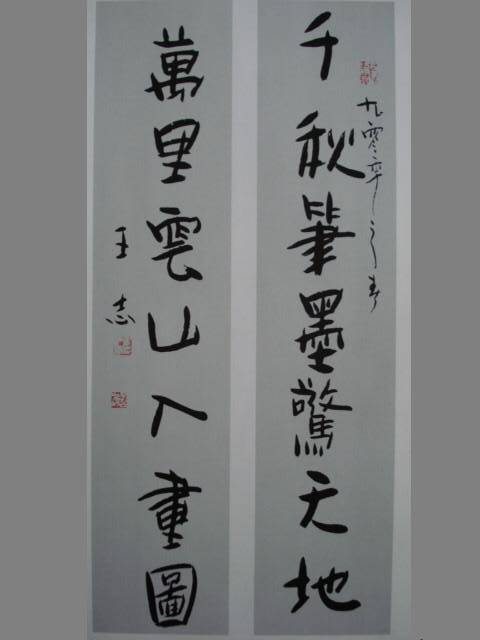 千秋筆墨驚天地
九零年之春
萬里雲山入畫圖
王志